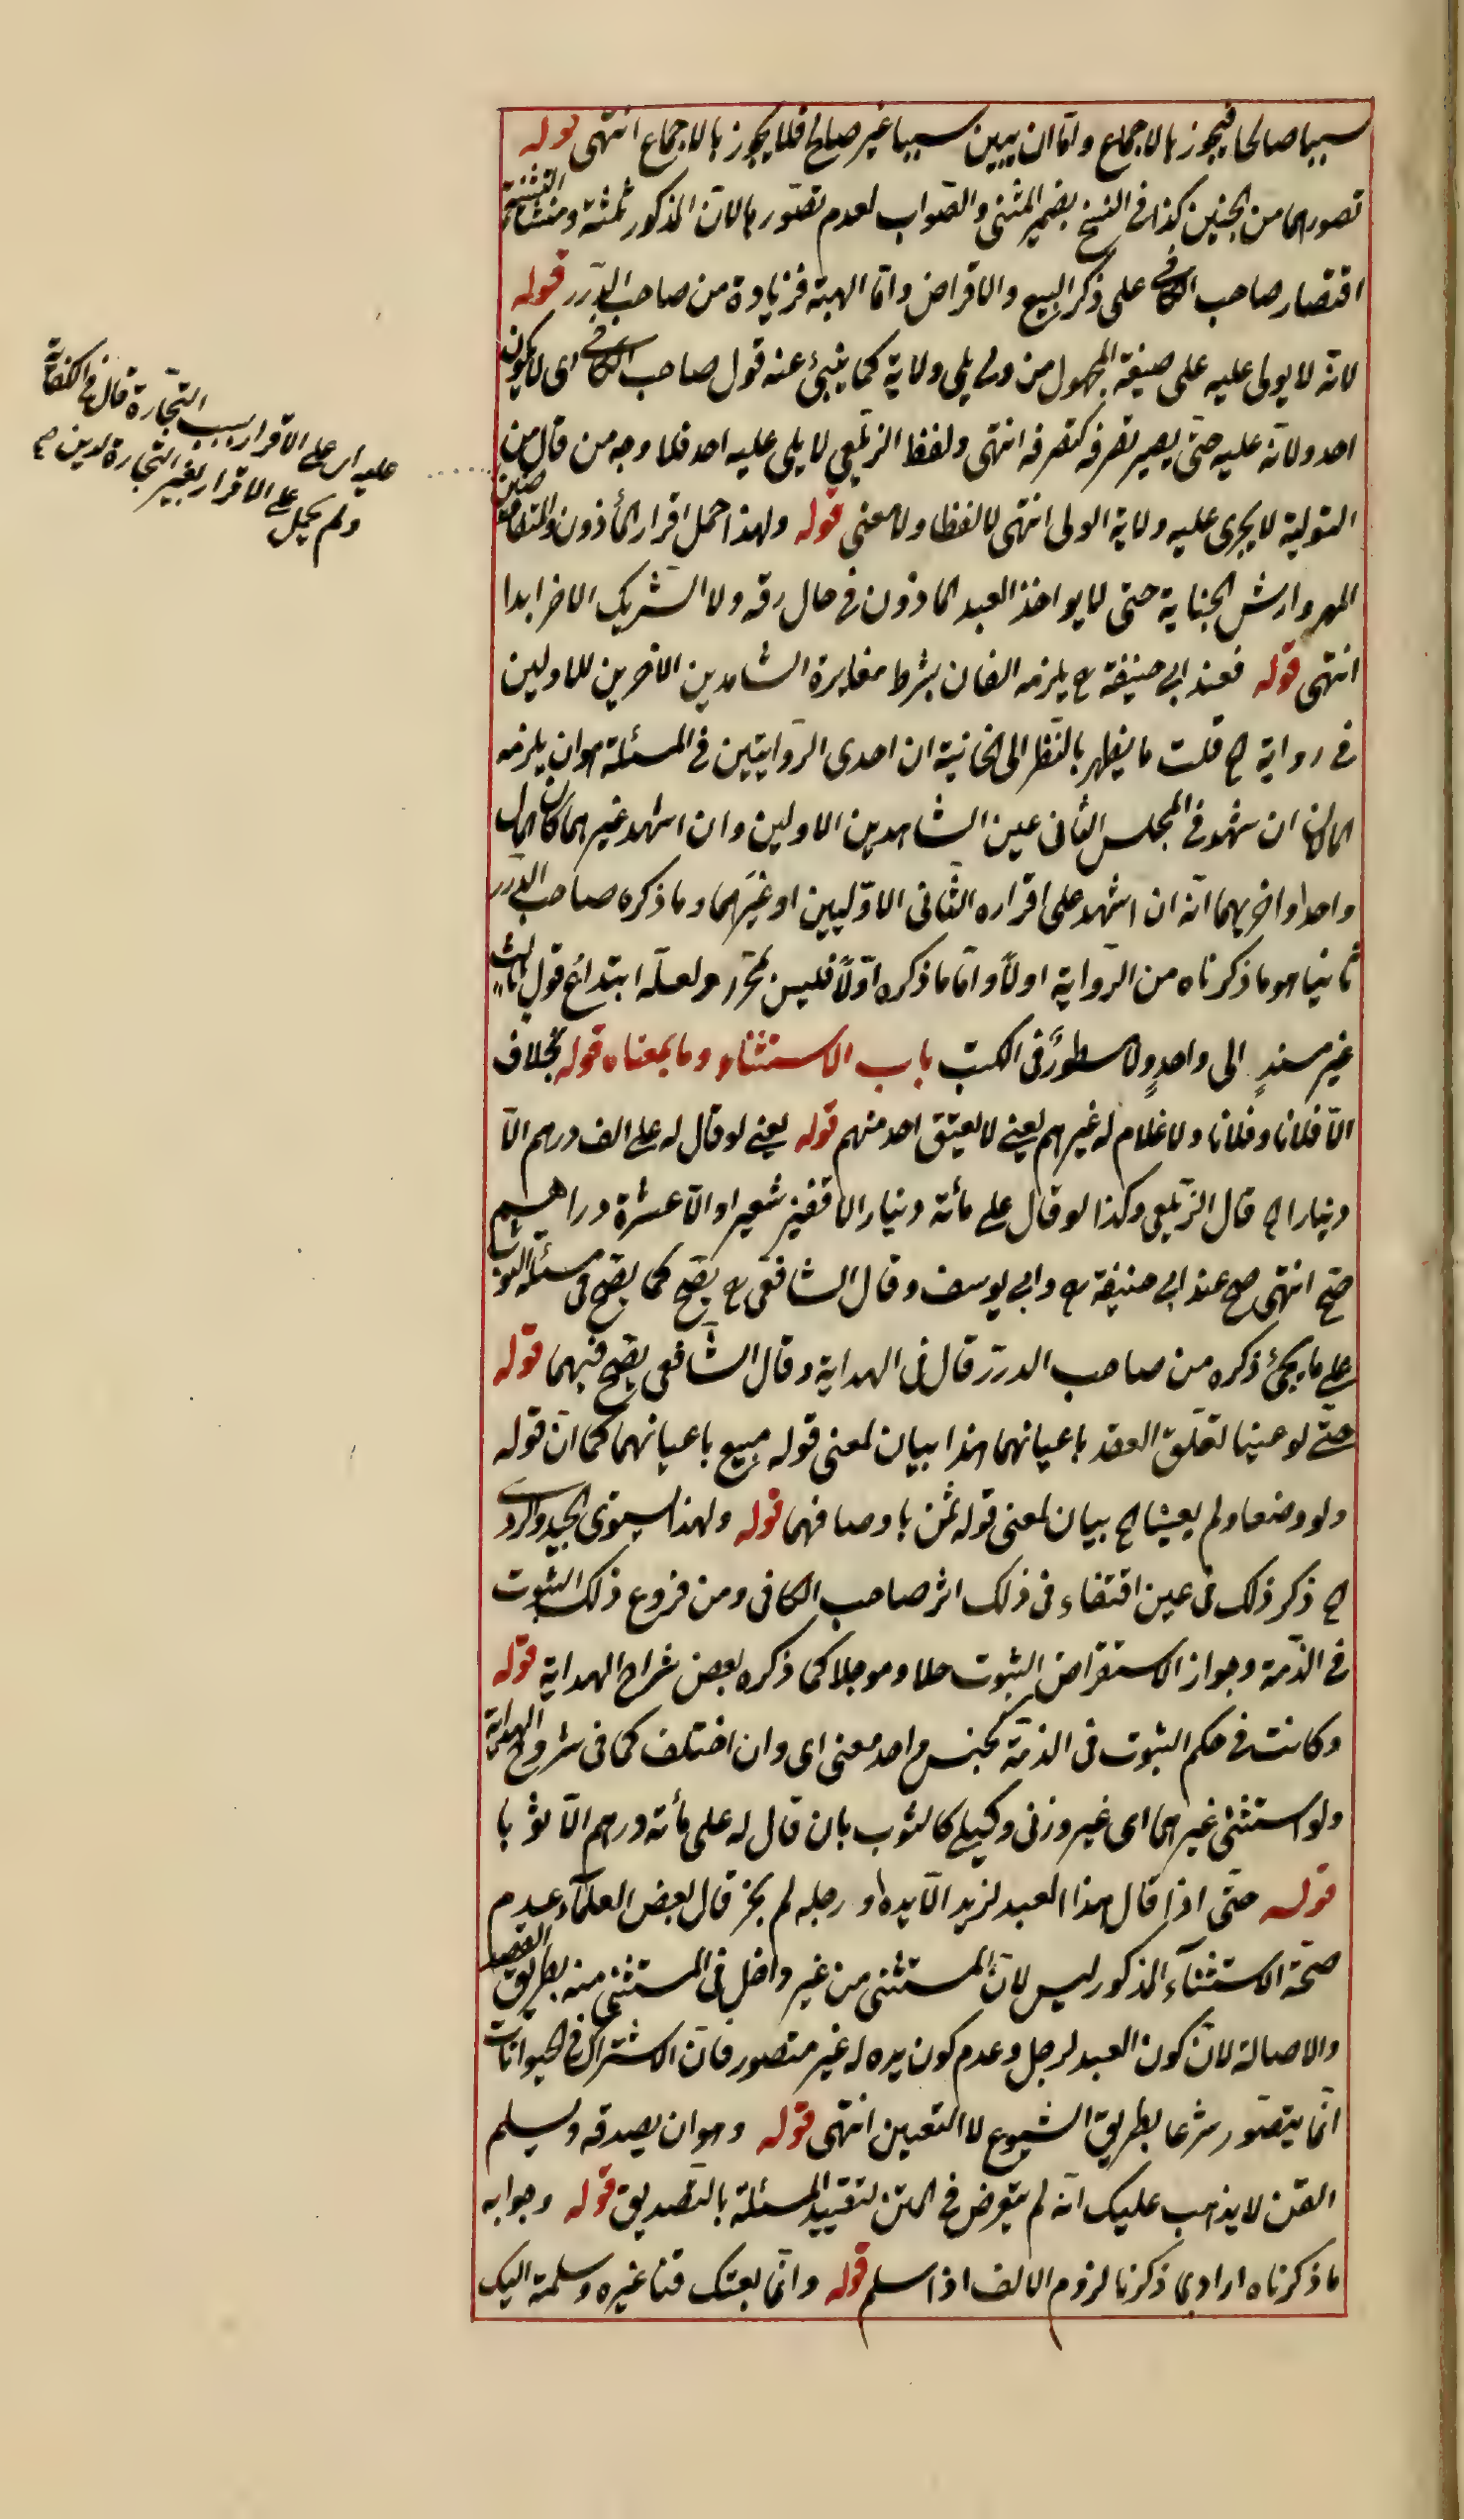 سببا صالحا فيجوز بالاجماع واما ان يبين سببا غير صالح فلا يجوز بالاجماع انتهى قوله
تصورهما من الجنين كذا فى النسخ بضمير المثنى والصواب لعدم تصورها لان المذكور ثلثة ومنشا التثنية
اقتصار صاحب الكافى على ذكر البيع والاقراض واما الهبة فزيادة من صاحب الدرر قوله
لانه لا يولى عليه على صيغة المجهول من ولى يلى ولاية كما ينبئ عنه قول صاحب الكافى اى لا يكون
احد ولانه عليه حتى يصير تصرفه كتصرفه انتهى ولفظ الزيلعى لا يلى عليه احد فلا وجه من قال من
التولية لا يجرى عليه ولاية الولى انتهى لا لفظا ولا معنى قوله ولهذا حمل اقرار المأذون والمتفاوضين
المهر وارش الجناية حتى لا يواخذ العبد الماذون فى حال رقه ولا الشريك الاخر ابدا
انتهى قوله فعند ابى حنيفة رح يلزمه الفان بشرط مغايرة الشاهدين الاخرين للاولين
فى رواية الخ قلت ما يظهر بالنظر الى الخانية ان احدى الروايتين فى المسئلة هو ان يلزمه
المالان ان شهد فى المجلس الثانى عين الشاهدين الاولين وان اشهد غيرهما كان المال
واحدا واخريهما انه ان اشهد على اقراره الثانى الاوليين او غيرهما وما ذكره صاحب الدرر
ثانيا هو ما ذكرناه من الرواية اولا واما ما ذكره اولا فليس بمحرر ولعله ابتداع قول ثالث
غير مسند الى واحد ولا مسطور فى الكتب باب الاستثناء وما بمعناه قوله بخلاف
الا فلانا وفلانا ولا غلام له غيرهم يعنى لا يعتق احد منهم قوله يعنى لو قال له على الف درهم الا
دينارا الخ قال الزيلعى وكذا لو قال على مأئة دينار الا قفيز شعير او الا عشرة دراهم
صح انتهى صح عند ابى حنيفة رح وابى يوسف وقال الشافعى رح يصح كما يصح فى مسئلة الثوب
على ما يجئ ذكره من صاحب الدرر قال فى الهداية وقال الشافعى يصح فيهما قوله
حتى لو عينا تعلق العقد باعيانهما هذا بيان لمعنى قوله مبيع باعيانهما كما ان قوله
ولو وصفا ولم يعينا الخ بيان لمعنى قوله ثمن باوصافهما قوله ولهذا يستوى الجيد والردى
الخ ذكر ذلك فى عين اقتضاء فى ذلك اثر صاحب الكافى ومن فروع ذلك الثبوت
فى الذمة وجواز الاستقراض الثبوت حالا وموجلا كما ذكره بعض شراح الهداية قوله
وكانت فى حكم الثبوت فى الذمة كجنس واحد معنى اى وان اختلف كما فى شروح الهداية
ولو استثنى غيرهما اى غير وزنى وكيلى كالثوب بان قال له على مأئة درهم الا ثوبا
قوله حتى اذا قال هذا العبد لزيد الا يده او رجله لم يجز قال بعض العلماء عدم
صحة الاستثناء المذكور ليس لان المستثنى من غير داخل فى المستثنى منه بطريق القصد
والاصالة لان كون العبد لرجل وعدم كون يده له غير متصور فان الاشتراك فى الحيوانات
انما يتصور شرعا بطريق الشيوع لا التعيين انتهى قوله وهو ان يصدقه ويسلم
القن لا يذهب عليك انه لم يتعرض فى المتن لتقييد المسئلة بالتصديق قوله وجوابه
ما ذكرناه اراد بما ذكرنا لزوم الالف اذا سلم قوله وانما بعتك قنا غيره وسلمته اليك
عليه اى على الاقرار بسبب التجارة قال فى الكفاية
ولم يحمل على الاقرار بغير التجارة لدين صح